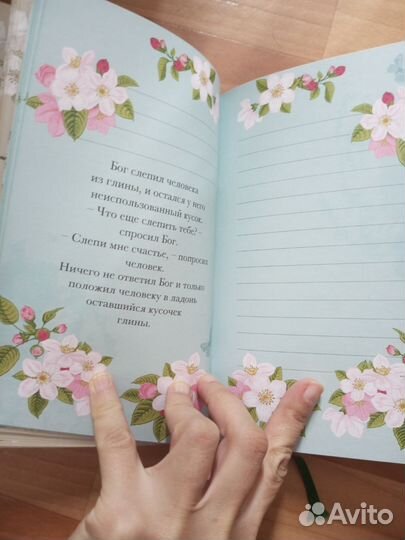 Бог слепил человека
из глины, и остался у него
неиспользованный кусок.
– Что еще слепить тебе? –
спросил Бог.
– Слепи мне счастье, – попросил
человек.
Ничего не ответил Бог и только
положил человеку в ладонь
оставшийся кусочек
глины.
Avito